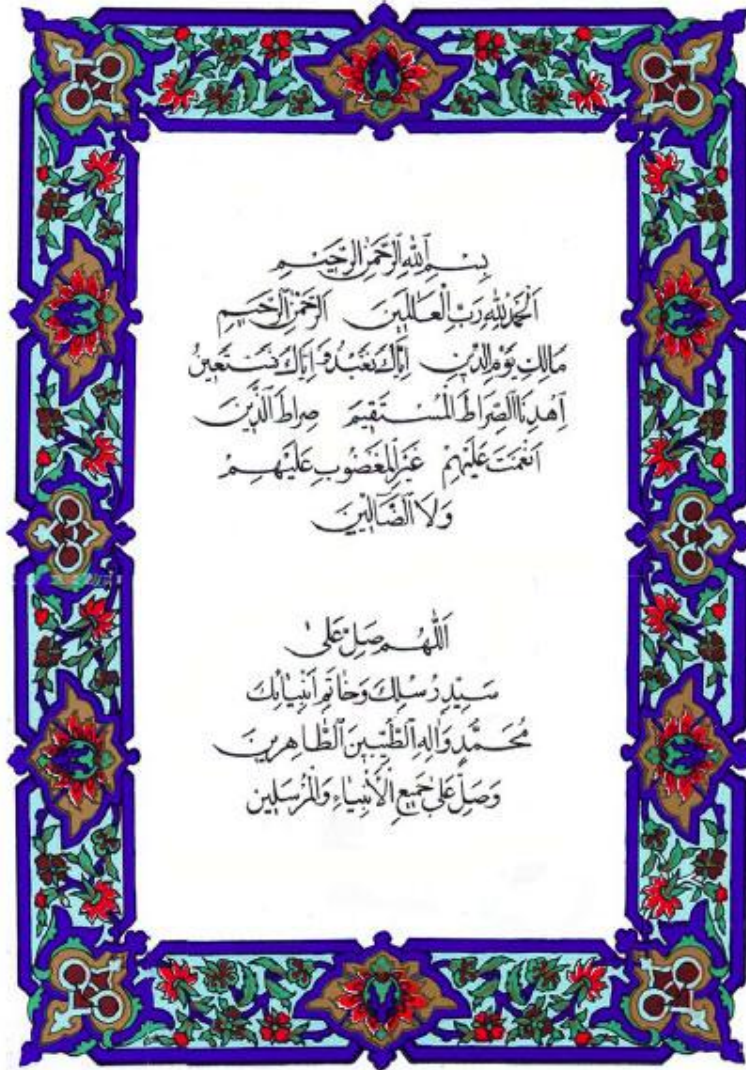 بِسْمِ ٱللّٰهِ ٱلرَّحْمٰنِ ٱلرَّحِيمِ
اَلْحَمْدُ لِلّٰهِ رَبِّ الْعَالَمِينَ اَلرَّحْمٰنِ ٱلرَّحِيمِ
مَالِكِ يَوْمِ الدِّينِ إِيَّاكَ نَعْبُدُ وَإِيَّاكَ نَسْتَعِينُ
اِهْدِنَا الصِّرَاطَ الْمُسْتَقِيمَ صِرَاطَ الَّذِينَ
اَنْعَمْتَ عَلَيْهِمْ غَيْرِ الْمَغْضُوبِ عَلَيْهِمْ
وَلَا ٱلضَّالِّينَ
اَللّٰهُمَّ صَلِّ عَلٰى
سَيِّدِ رُسُلِكَ وَخَاتَمِ اَنْبِيَائِكَ
مُحَمَّدٍ وَاٰلِهِ ٱلطَّيِّبِينَ ٱلطَّاهِرِينَ
وَصَلِّ عَلٰى جَمِيعِ الْأَنْبِيَاءِ وَالْمُرْسَلِين